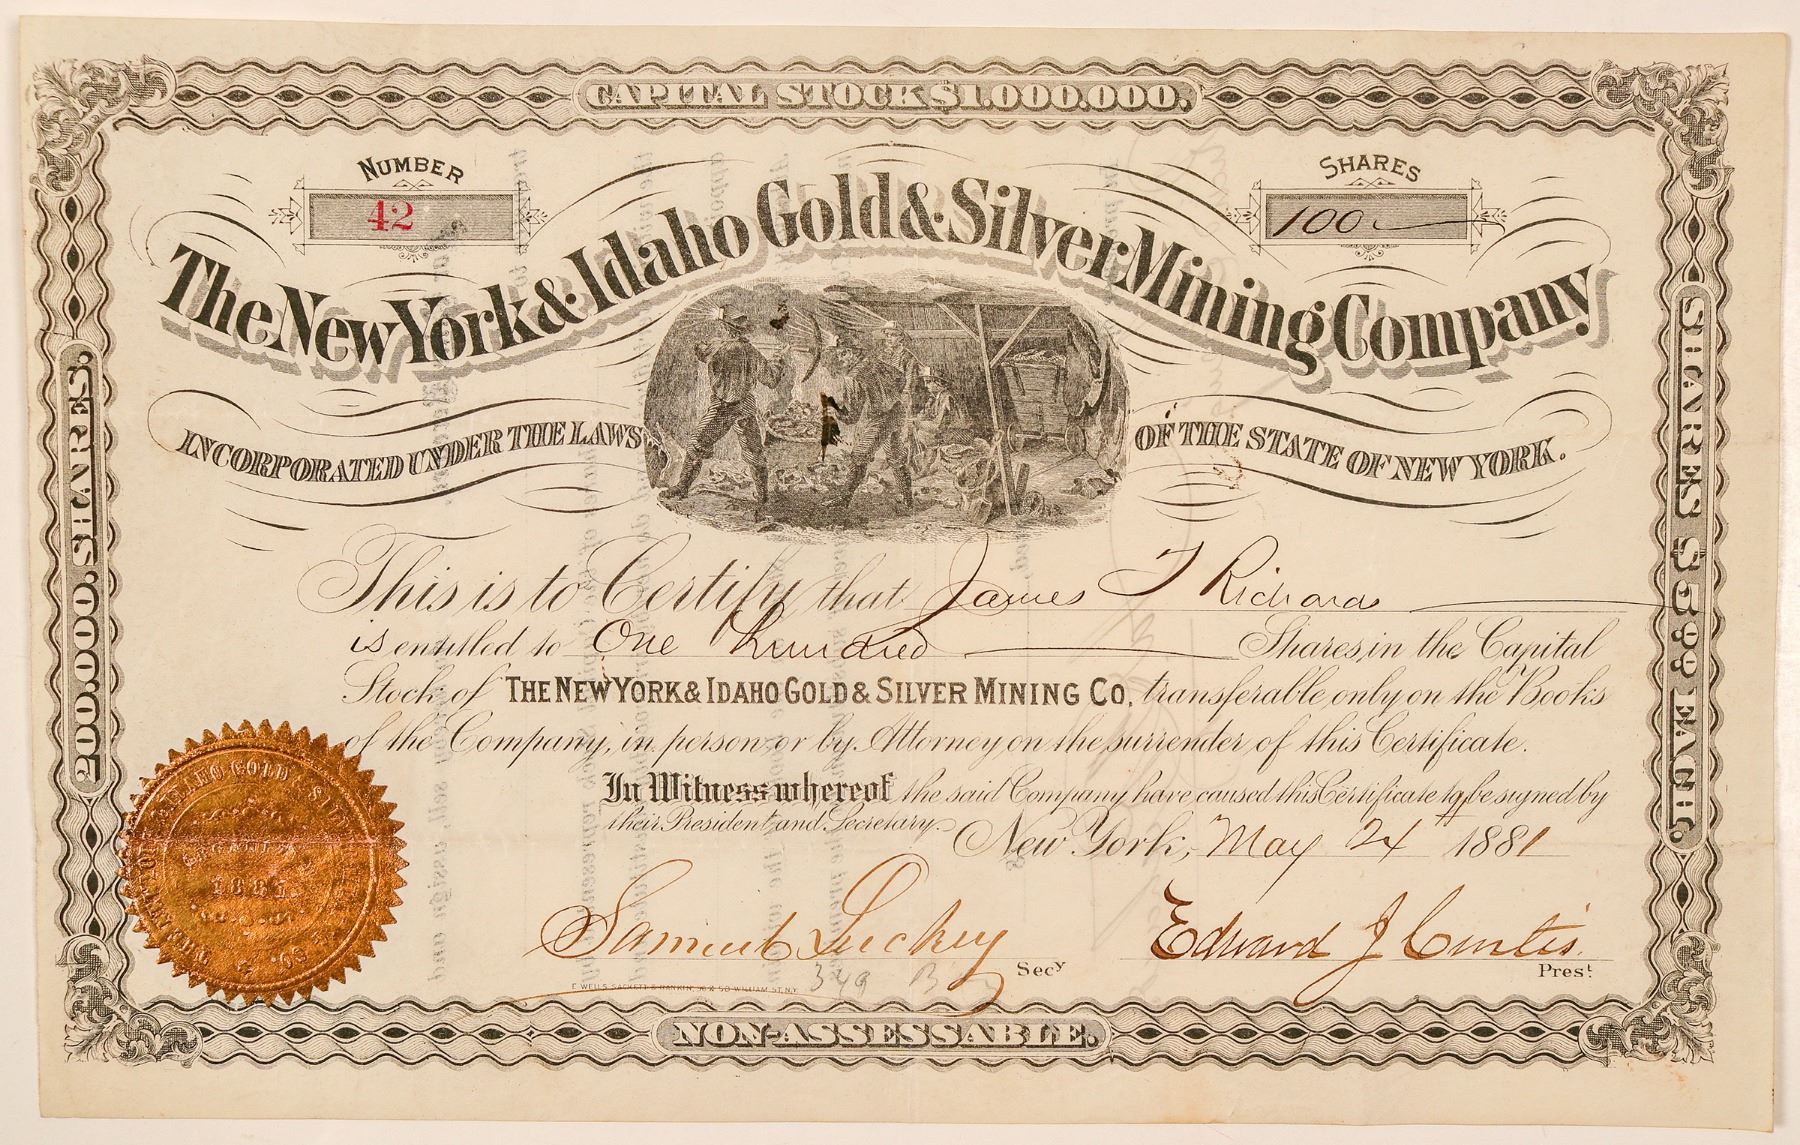 CAPITAL STOCK $1.000.000.
NUMBER
42
SHARES
100
The New York & Idaho Gold & Silver Mining Company
INCORPORATED UNDER THE LAWS
OF THE STATE OF NEW YORK.
200.000. SHARES.
SHARES $5.00 EACH.
This is to Certify that James T Richards
is entitled to One hundred Shares, in the Capital
Stock of THE NEW YORK & IDAHO GOLD & SILVER MINING CO. transferable only on the Books
of the Company, in person or by Attorney on the surrender of this Certificate.
In Witness whereof the said Company have caused this Certificate to be signed by
their President and Secretary.
New York, May 24 1881
Samuel Luckey
Secy
Edward J Curtis.
Prest.
349
IDAHO GOLD & SILVER
1881
CO.
E. WELLS SACKETT & RANKIN, 56 & 58 WILLIAM ST. N.Y.
NON-ASSESSABLE.